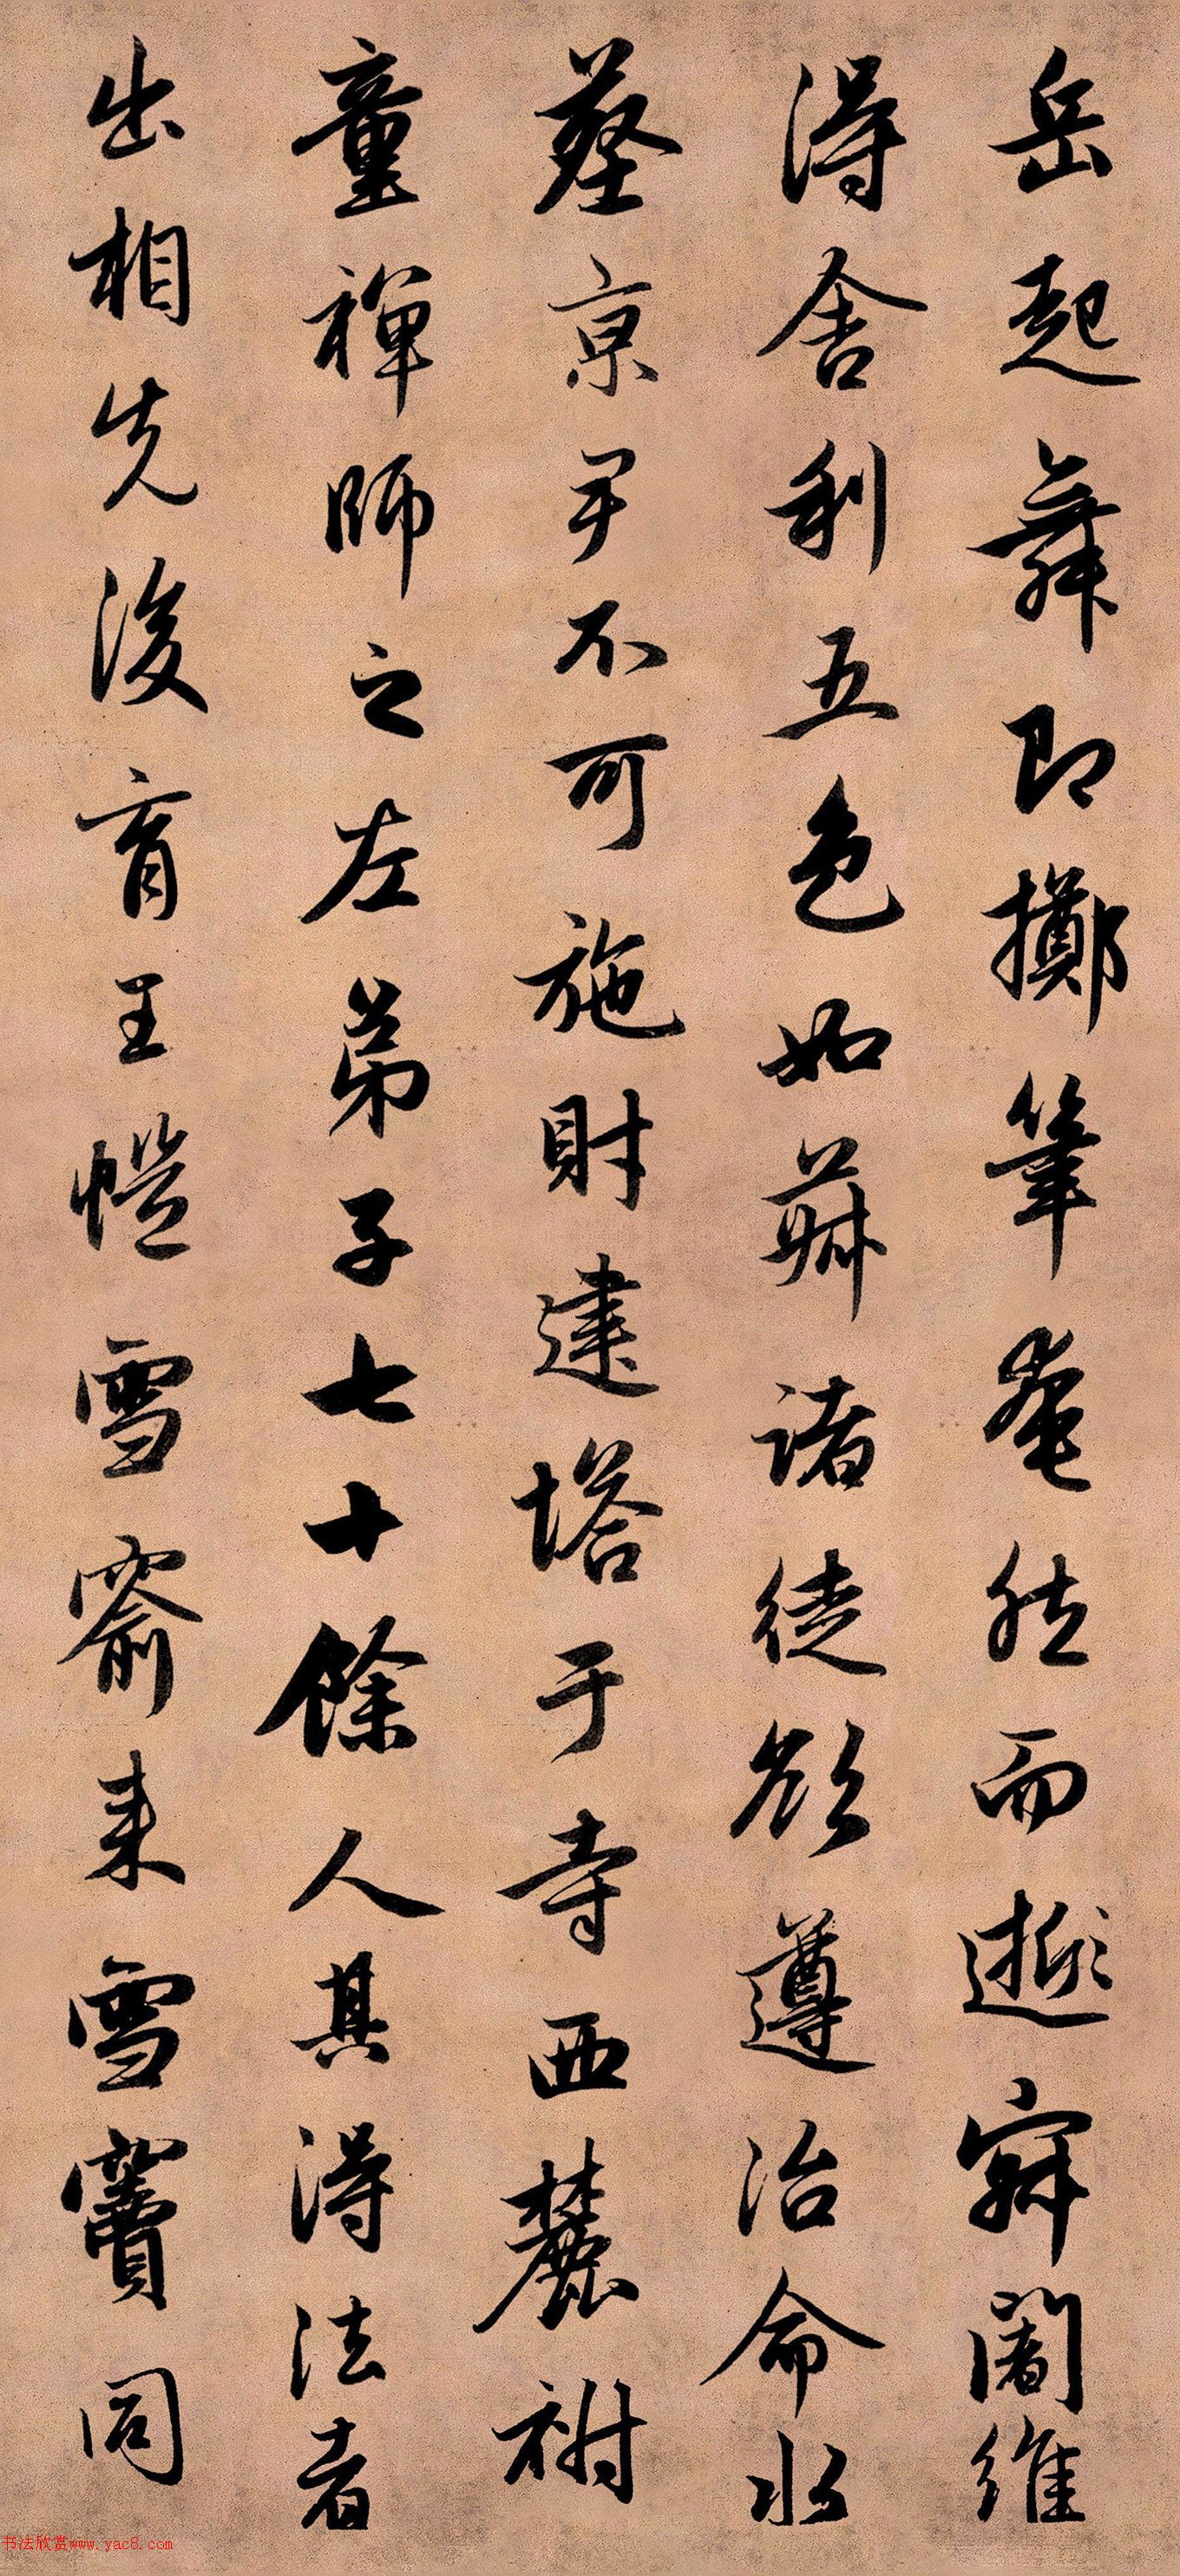 岳起舞即擲筆奄然而逝闍維
得舍利五色如菽諸徒欲遵治命水
塟京尹不可施財建塔于寺西麓祔
童禪師之左弟子七十餘人其得法者
出相先後育王愷雪窬来雪竇同
书法欣赏www.yac8.com